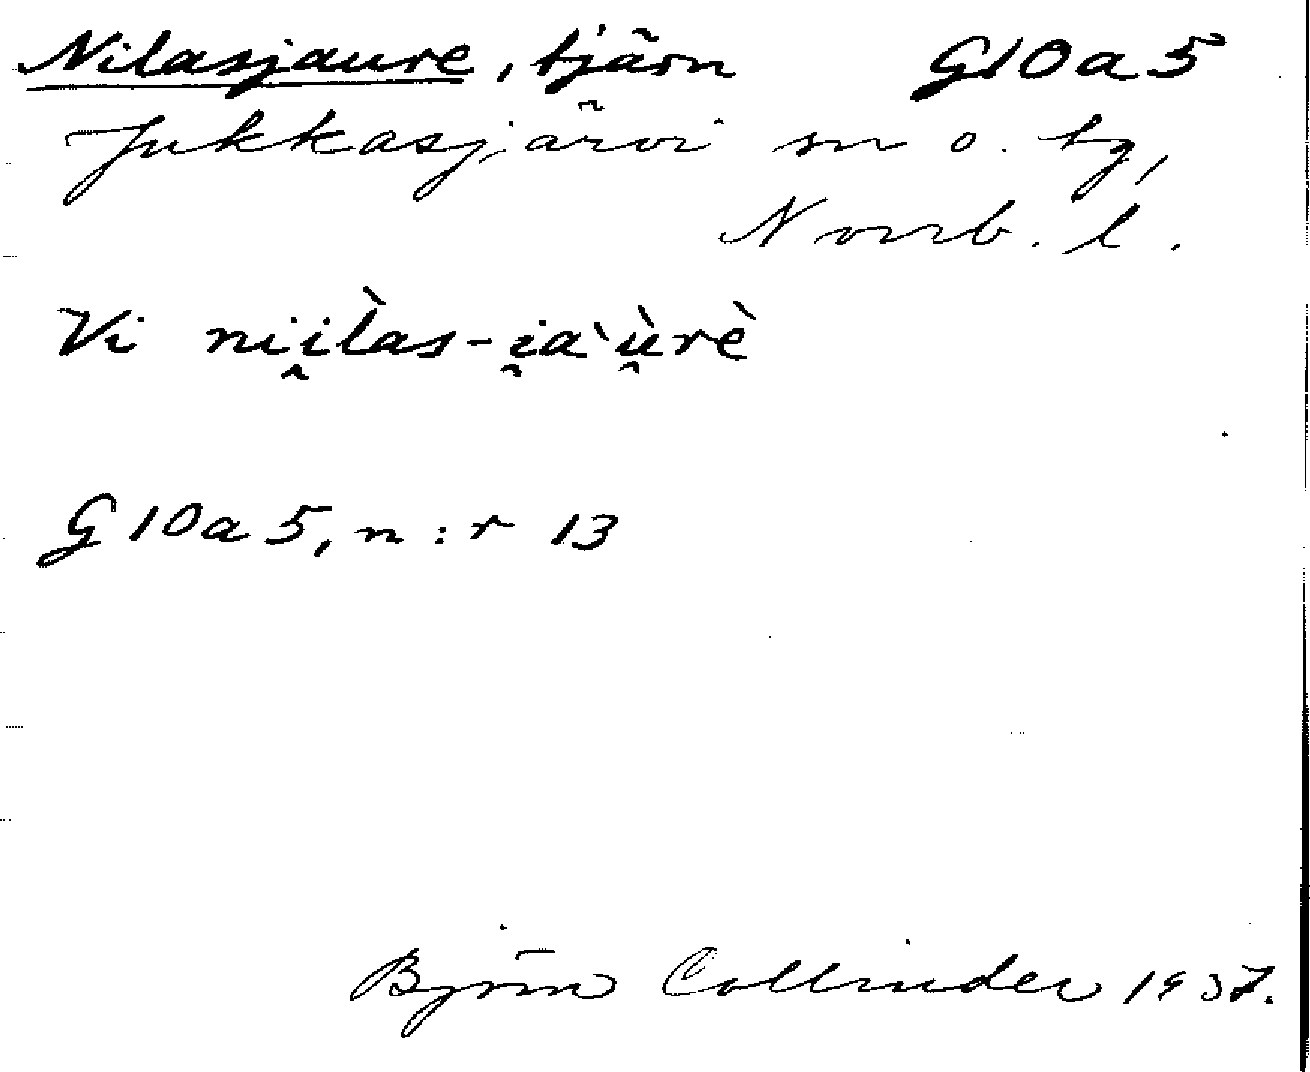 Nilasjaure, tjärn G10a5
Jukkasjärvi sn o. tg,
Norrb. l.
Vi nii̯l̀as-i̯a`ù̯rè
G10a5, n:r 13
Björn Collinder 1937.